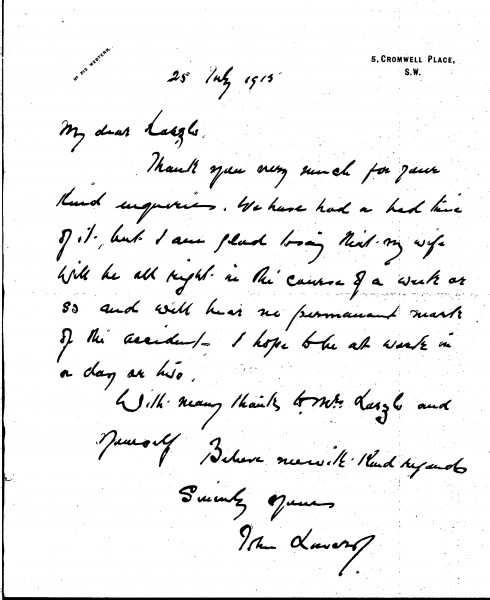 5, CROMWELL PLACE,
S.W.
WESTERN.
25 July 1915
My dear Laszlo.
Thank you very much for your
kind enquiries. We have had a bad time
of it, but I am glad to say that my wife
will be all right in the course of a week or
so and will bear no permanent mark
of the accident. I hope to be at work in
a day or two.
With many thanks to Mrs Laszlo and
yourself Believe me with kind regards
Sincerely yours
John Lavery